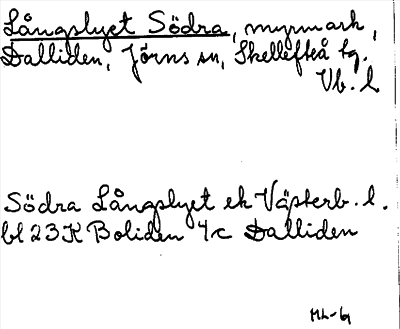 Långslyet Södra, myrmark,
Dalliden, Jörns sn, Skellefteå tg.
Vb. l
Södra Långslyet ek Västerb. l.
bl 23 K Boliden 4c Dalliden